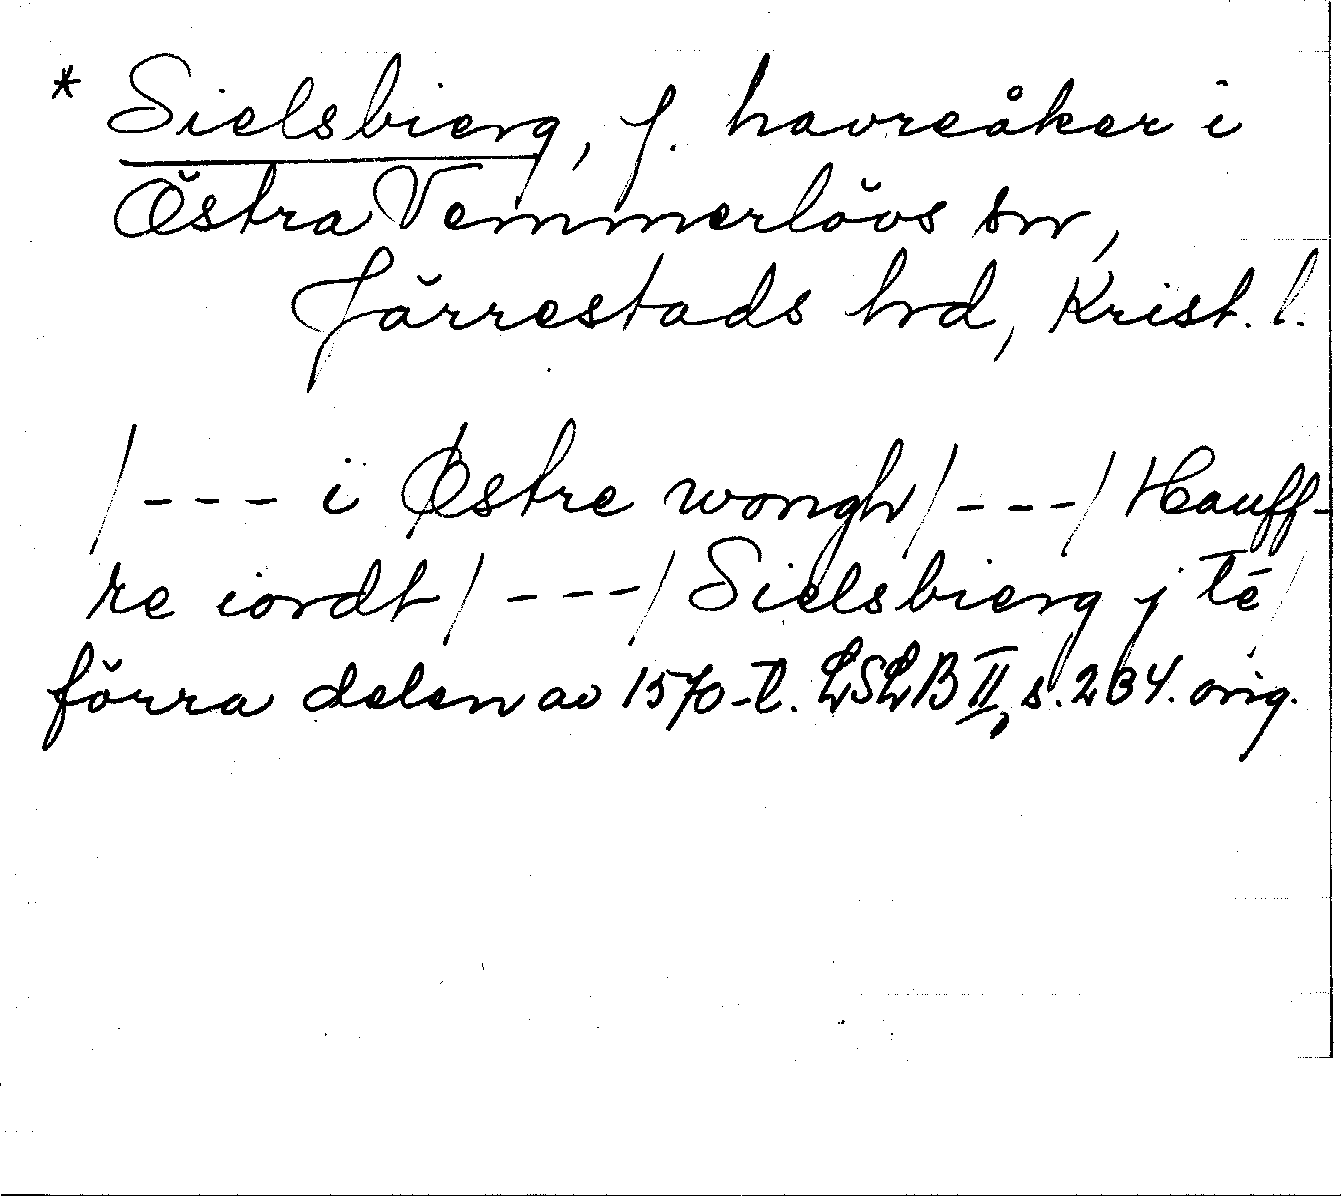 * Sielsbierg, f. havreåker i
Östra Vemmerlövs sn,
Järrestads hd, Krist. l.
/--- i Østre wongh/---/Hauff-
re iordt/---/Sielsbierg j tē/
förra delen av 1570-t. LSLB II, s. 234. orig.